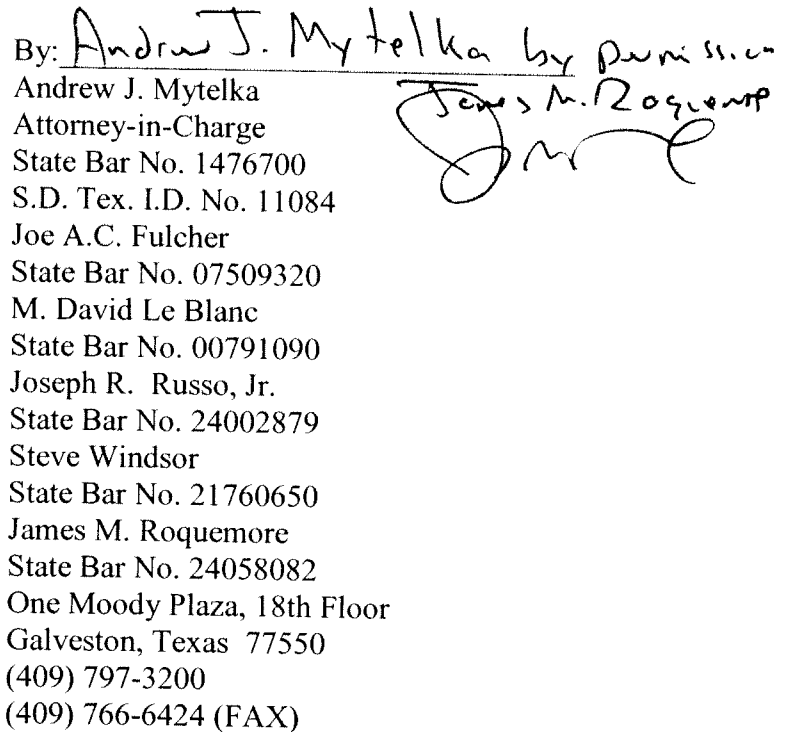 By: Andrew J. Mytelka by permission
James M. Roquemore
Andrew J. Mytelka
Attorney-in-Charge
State Bar No. 1476700
S.D. Tex. I.D. No. 11084
Joe A.C. Fulcher
State Bar No. 07509320
M. David Le Blanc
State Bar No. 00791090
Joseph R.  Russo, Jr.
State Bar No. 24002879
Steve Windsor
State Bar No. 21760650
James M. Roquemore
State Bar No. 24058082
One Moody Plaza, 18th Floor
Galveston, Texas  77550
(409) 797-3200
(409) 766-6424 (FAX)